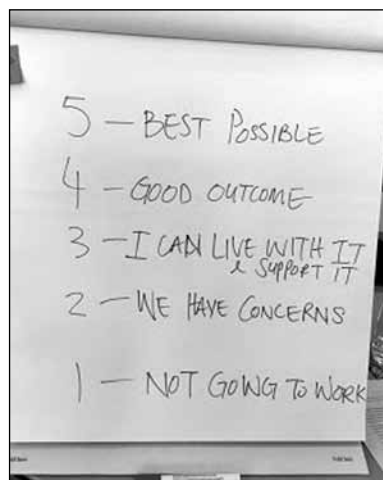 5 — BEST POSSIBLE
4 — GOOD OUTCOME
3 — I CAN LIVE WITH IT
& SUPPORT IT
2 — WE HAVE CONCERNS
1 — NOT GOING TO WORK